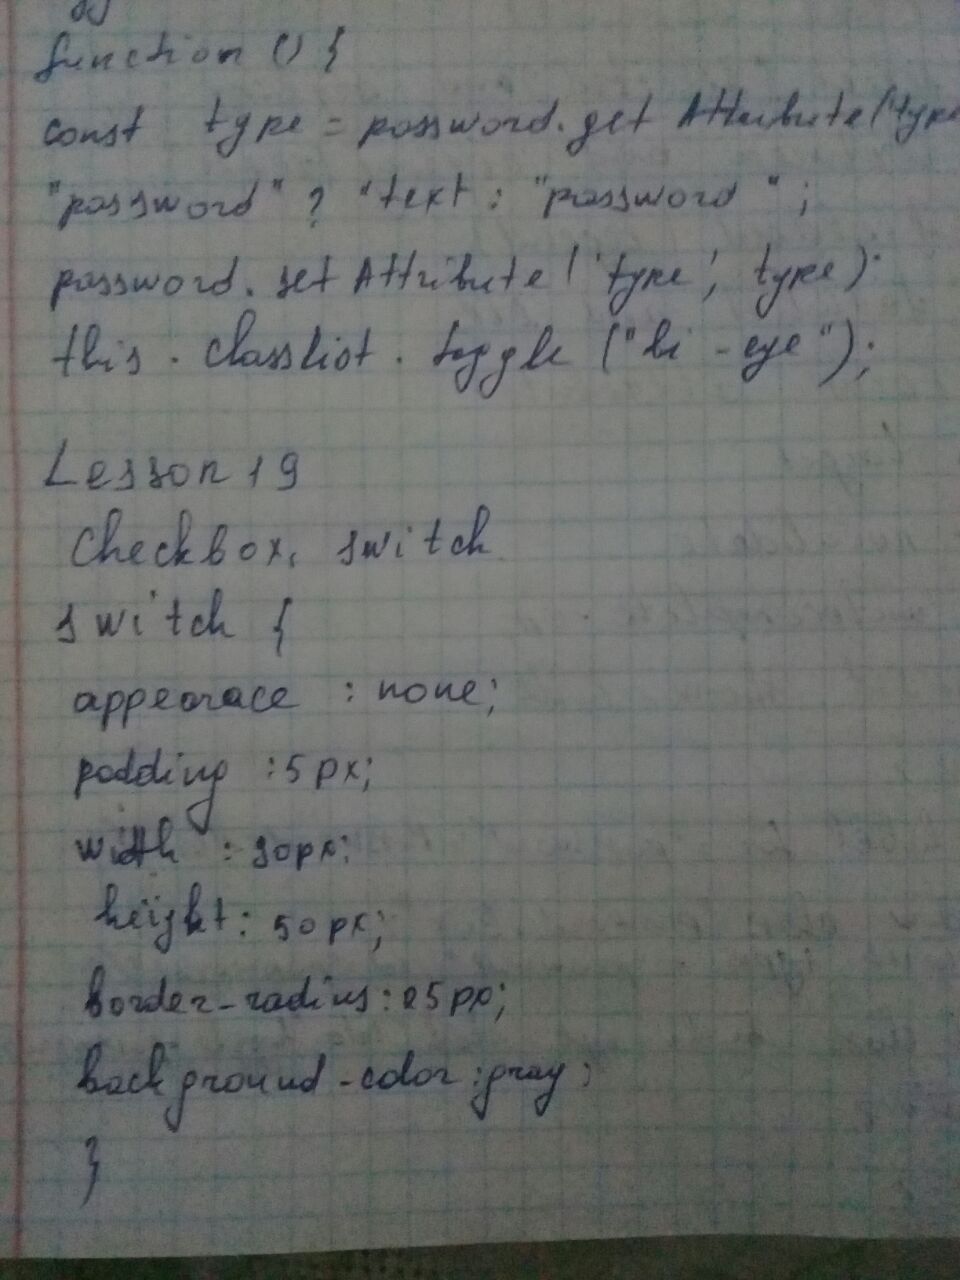 function () {
const type = password.getAttribute('type
"password" ? "text : "password ";
password.setAttribute('type', type);
this.classlist.toggle ("bi-eye");
Lesson 19
Checkbox, switch
switch {
appearace : none;
padding : 5px;
width : 90px;
height : 50px;
border-radius : 25px;
background-color : gray;
}